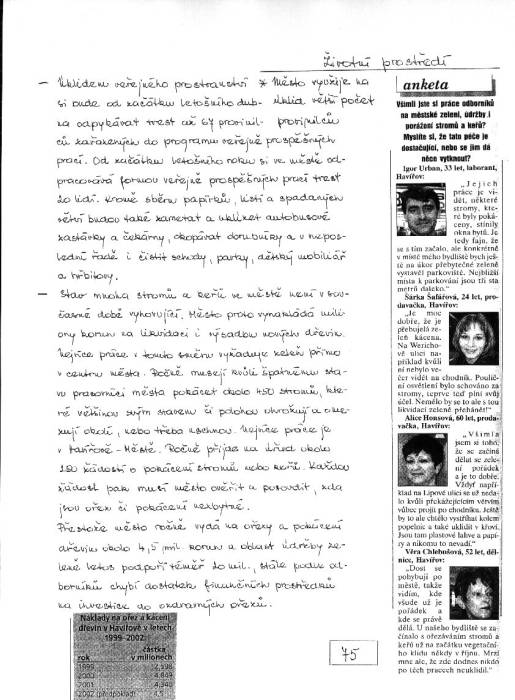 Životní prostředí
– Úklidem veřejného prostranství * Město využije na
si bude od začátku letošního dub- úklid větší počet
na odpykávat trest až 67 provinil- provinilců
ců zařazených do programu veřejně prospěšných
prací. Od začátku letošního roku si ve městě od-
pracovává formou veřejně prospěšných prací trest
20 lidí. Kromě sběru papírků, listí a spadaných
větví budou také zametat a uklízet autobusové
zastávky a čekárny, okopávat obrubníky a v nepos-
lední řadě i čistit schody, parky, dětský mobiliář
a hřbitovy.
– Stav mnoha stromů a keřů ve městě není v sou-
časné době vyhovující. Město proto vynakládá mili-
ony korun na likvidaci i výsadbu nových dřevin.
Nejvíce práce v tomto směru vyžaduje zeleň přímo
v centru města. Ročně musejí kvůli špatnému sta-
vu pracovníci města pokácet okolo 450 stromů, kte-
ré většinou svým stavem či polohou ohrožují a ome-
zují okolí, nebo třeba uschnou. Nejvíce práce je
v Havířově-Městě. Ročně přijde na úřad okolo
120 žádostí o pokácení stromů nebo keřů. Každou
žádost pak musí město ověřit a posoudit, zda
jsou ořez či pokácení nezbytné.
Přestože město ročně vydá na ořezy a pokácení
dřevin okolo 4,5 mil. korun a oblast údržby ze-
leně letos podpoří téměř 20 mil., stále podle od-
borníků chybí dostatek finančních prostředků
na investice do okrasných ořezů.
Náklady na ořez a kácení
dřevin v Havířově v letech
1999–2002:
rok částka v milionech
1999 2,598
2000 4,849
2001 4,340
2002 (předpoklad) 4,5
75
anketa
Všimli jste si práce odborníků
na městské zeleni, údržby i
porážení stromů a keřů?
Myslíte si, že tato péče je
dostačující, nebo se jim dá
něco vytknout?
Igor Urban, 33 let, laborant,
Havířov:
„Jejich
práce je vi-
dět, některé
stromy, kte-
ré byly poká-
ceny, stínily
okna bytů. Je
tedy fajn, že
se s tím začalo, ale konkrétně
v místě mého bydliště bych ješ-
tě na úkor přebytečné zeleně
vystavěl parkoviště. Nejbližší
místa k parkování jsou tři sta
metrů daleko.“
Šárka Šafářová, 24 let, pro-
davačka, Havířov:
„Je moc
dobře, že je
přebujelá ze-
leň kácena.
Na Wericho-
vě ulici na-
příklad kvůli
ní nebylo ve-
čer vidět na chodník. Poulič-
ní osvětlení bylo schováno za
stromy, teprve teď plní svůj
účel. Nemělo by se to ale s tou
likvidací zeleně přehánět!“
Alice Honsová, 60 let, proda-
vačka, Havířov:
„Všimla
jsem si toho,
že se začíná
dělat se zele-
ní pořádek
a je to dobře.
Vždyť napří-
klad na Lípové ulici se už neda-
lo kvůli překážejícím větvím
vůbec projít po chodníku. Ještě
by to ale chtělo vystříhat kolem
popelnic a také uklidit v křoví.
Jsou tam plastové lahve a papí-
ry a nikomu to nevadí.“
Věra Chlebušová, 52 let, děl-
nice, Havířov:
„Dost se
pohybuji po
městě, takže
vidím, kde
všude už je
pořádek a
kde se právě
dělá. U našeho bydliště se za-
čínalo s ořezáváním stromů a
keřů už na začátku vegetační-
ho klidu někdy v říjnu. Mrzí
mne ale, že zde dodnes nikdo
po těch pracech neuklidil.“